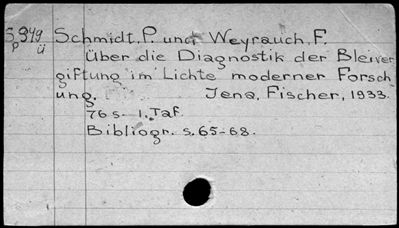 S 349 Schmidt, P. und Weyrauch, F.
p ü
Über die Diagnostik der Bleiver
giftung im Lichte moderner Forsch
ung. Jena, Fischer, 1933.
76 s. 1. Taf.
Bibliogr. s. 65-68.